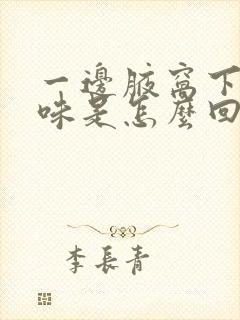 一邊腋窩下
味是怎麼回
李長青